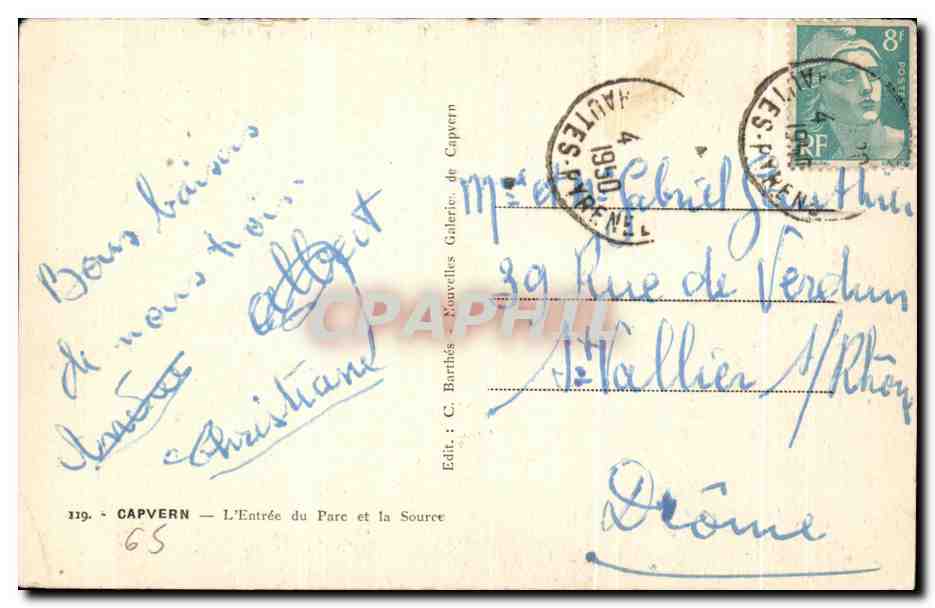 Bons baisers
de nous trois
Christiane
119. - CAPVERN — L'Entrée du Parc et la Source
65
Edit. : C. Barthés - Nouvelles Galeries de Capvern
CPAPHIL
HAUTES-PYRENEES
4
1950
HAUTES-PYRENEES
4
1950
8F
POSTES
RF
Mr et Me Gabriel Gauthier
39 Rue de Verdun
St Vallier s/Rhône
Drôme